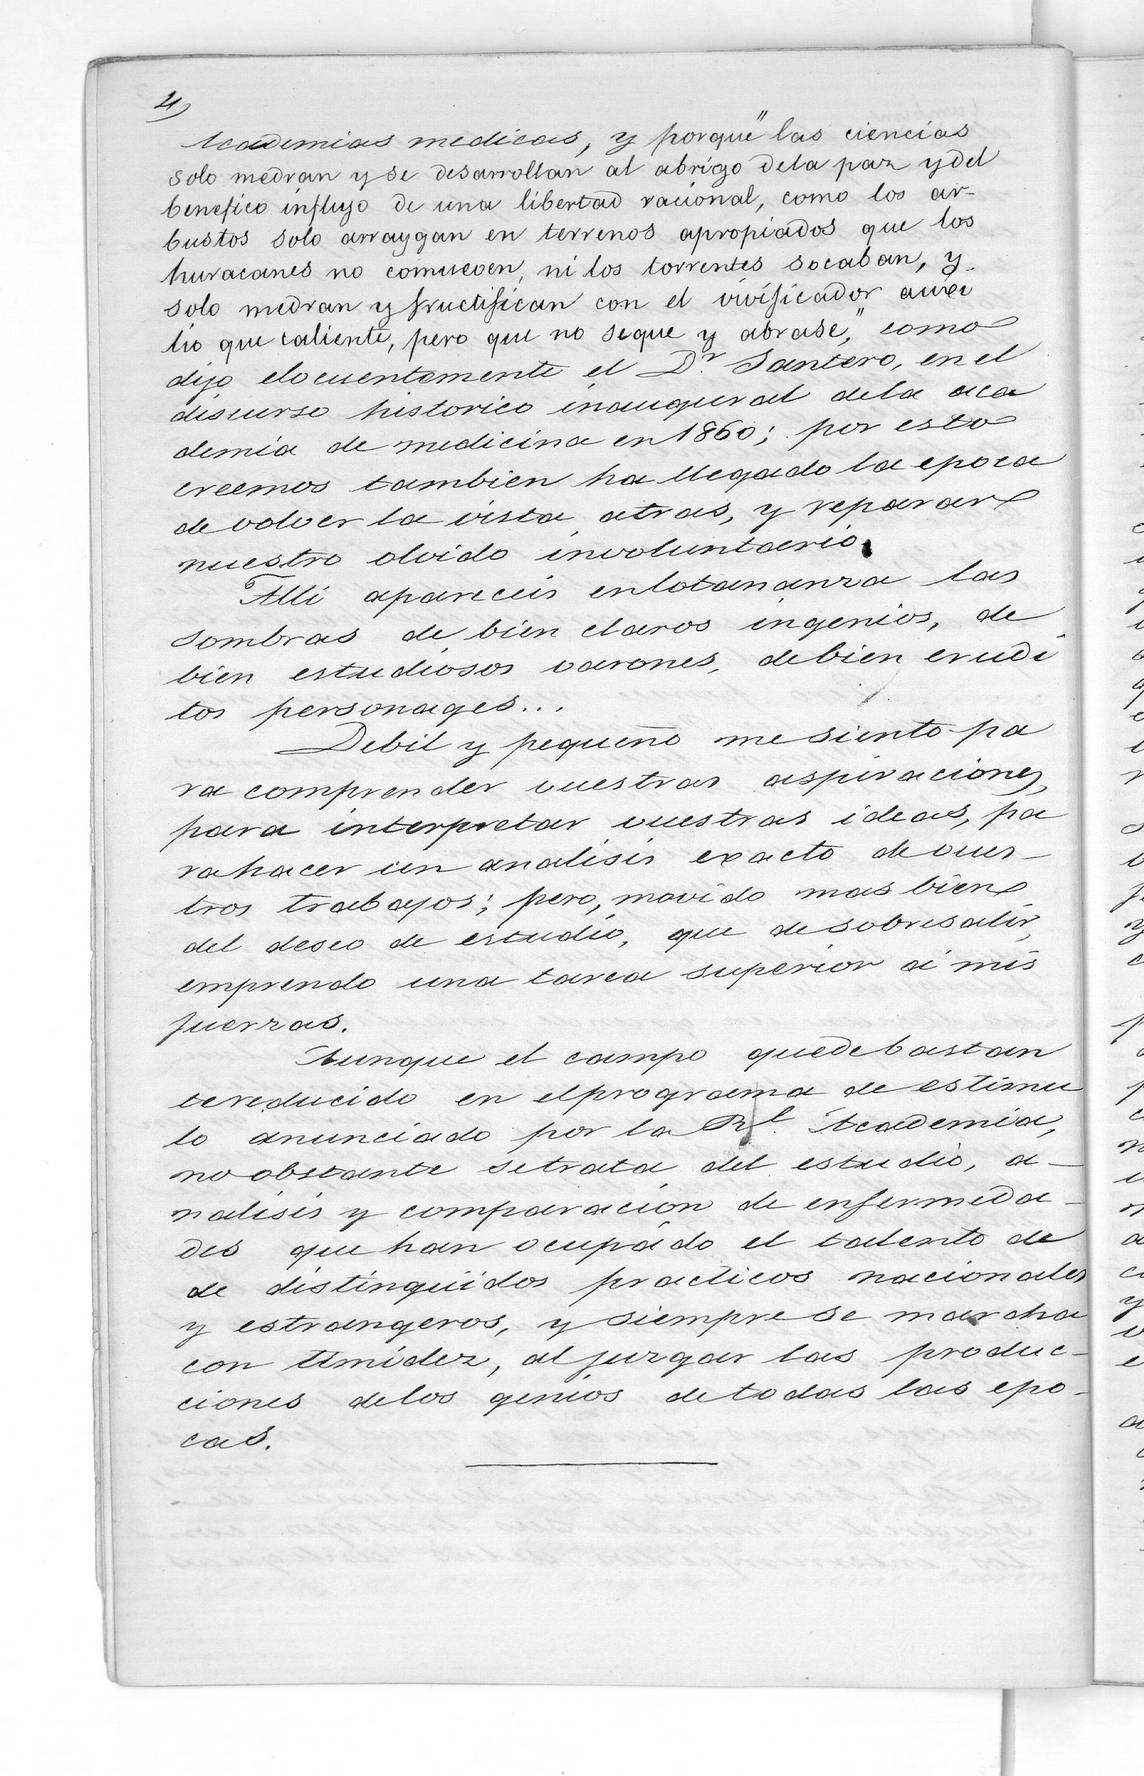 4)
Academias medicas, y porque "las ciencias
solo medran y se desarrollan al abrigo dela paz y del
benefico influjo de una libertad racional, como los ar-
bustos solo arraygan en terrenos apropiados que los
huracanes no comueven, ni los torrentes socaban, y
solo medran y fructifican con el vivificador auxi
lio que caliente, pero que no seque y abrase," como
dijo elocuentemente el Dr. Santero, en el
discurso historico inaugural dela aca
demia de medicina en 1860; por esto
creemos tambien ha llegado la epoca
de volver la vista atras, y reparar
nuestro olvido involuntario.
Alli apareceis enlotananza las
sombras de bien claros ingenios, de
bien estudiosos varones, de bien erudi
tos personages...
Debil y pequeño me siento pa
ra comprender vuestras aspiraciones,
para interpretar vuestras ideas, pa
ra hacer un analisis exacto de vues-
tros trabajos; pero, movido mas bien
del deseo de estudio, que de sobresalir,
emprendo una tarea superior á mis
fuerzas.
Aunque el campo quede bastan
te reducido en el programa de estimu
lo anunciado por la Rl. Academia,
no obstante se trata del estudio, a-
nalisis y comparacion de enfermeda-
des que han ocupádo el talento de
de distinguidos practicos nacionales
y estrangeros, y siempre se marcha
con timidez, al juzgar las produc-
ciones delos genios de todas las epo-
cas.